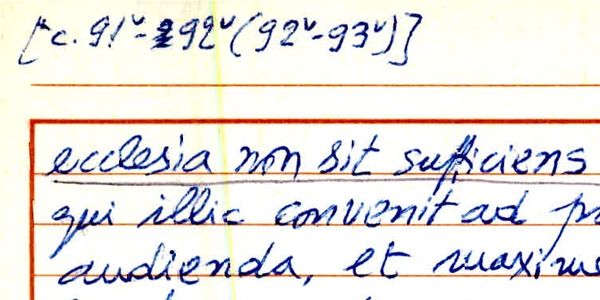 [c. 91v-92v (92v-93v)]
ecclesia non sit sufficiens
qui illic convenit ad
audienda, et